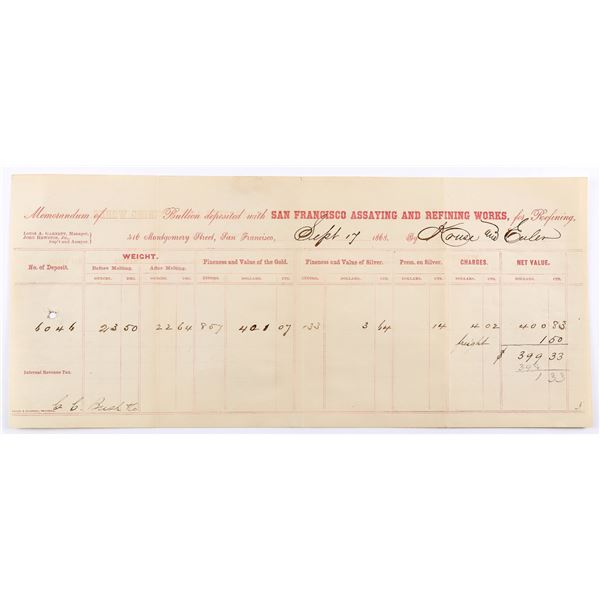 Memorandum of Bullion deposited with SAN FRANCISCO ASSAYING AND REFINING WORKS, for Refining,
LOUIS A. GARNETT, Manager,
JOHN HEWSTON, JR.,
Sup't and Assayer.
416 Montgomery Street, San Francisco, Sept 17 1868. By Kruse and Euler
No. of Deposit. WEIGHT. Fineness and Value of the Gold. Fineness and Value of Silver. Prem. on Silver. CHARGES. NET VALUE.
Before Melting. After Melting.
OUNCES. DEC. OUNCES. DEC. FINENESS. DOLLARS. CTS. FINENESS. DOLLARS. CTS. DOLLARS. CTS. DOLLARS. CTS. DOLLARS. CTS.
6046 23 50 22 64 857 401 07 133 3 64 14 4 02 400 83
freight 1 50
$ 399 33
Internal Revenue Tax.
398
1 33
C. C. Bush & Co